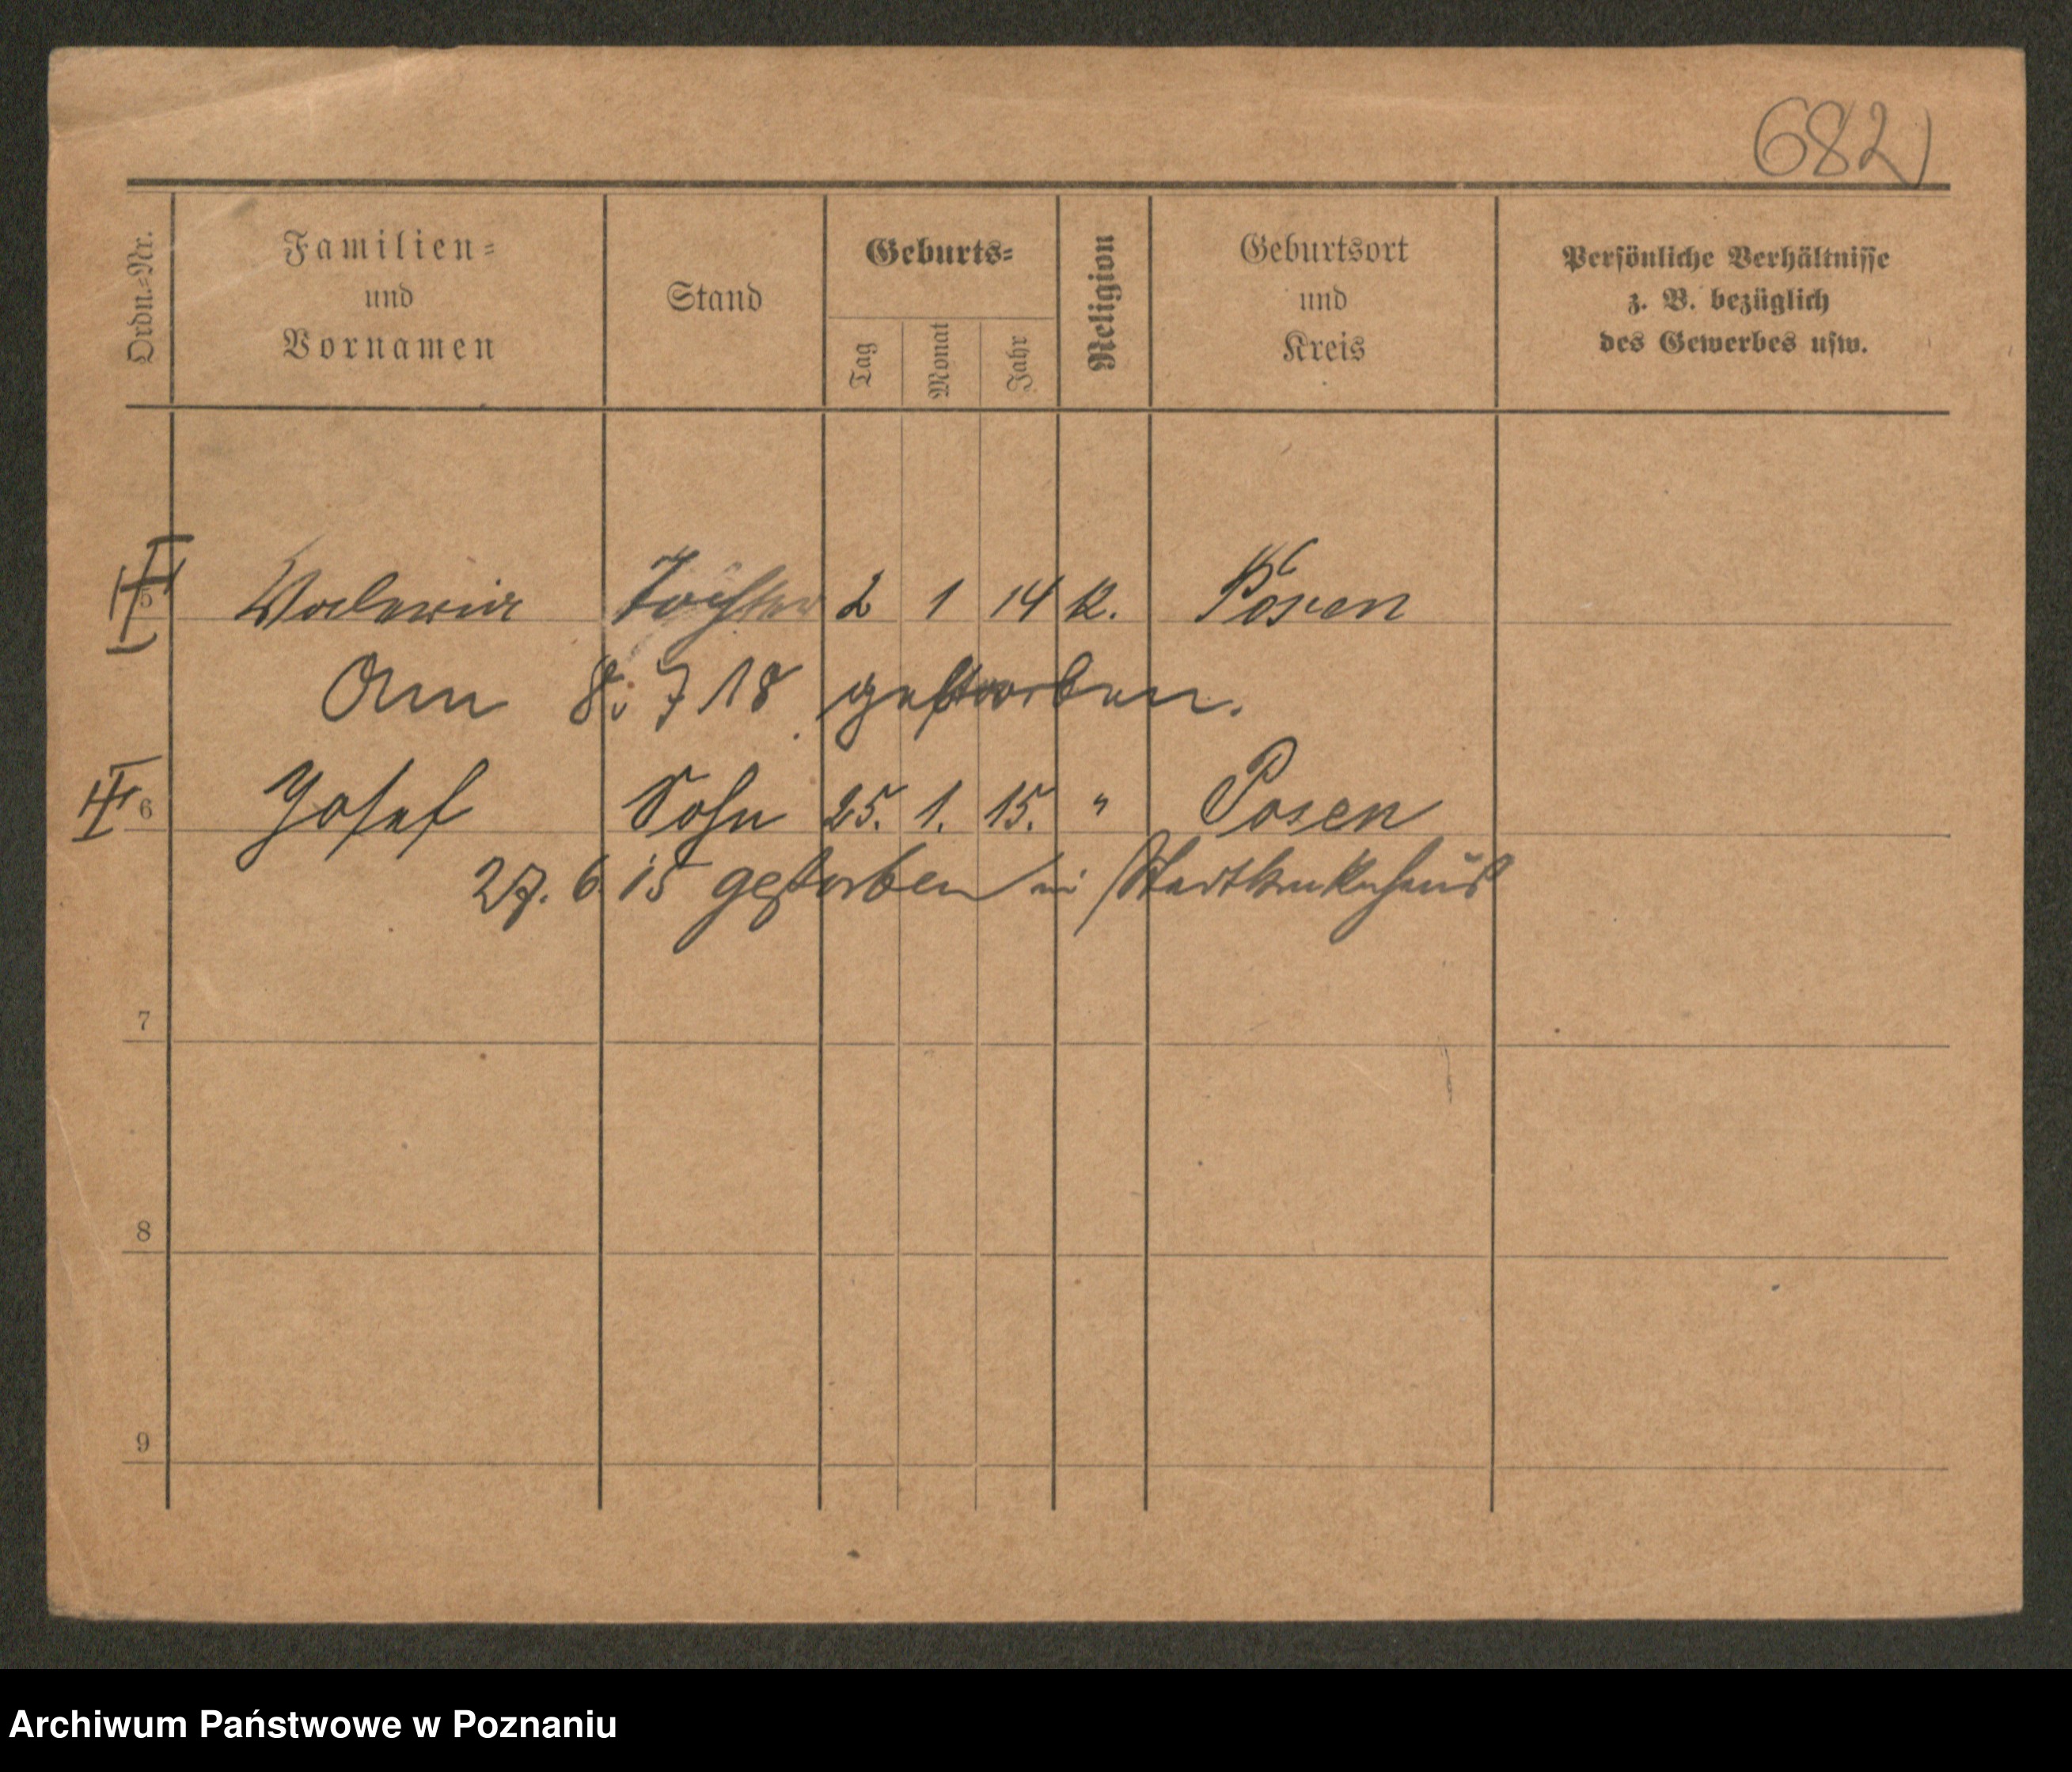 682
Ordn.-Nr.
Familien-
und
Vornamen
Stand
Geburts-
Tag
Monat
Jahr
Religion
Geburtsort
und
Kreis
Persönliche Verhältnisse
z. B. bezüglich
des Gewerbes usw.
5 Waleria Tochter 2 1 14 K. Posen
Am 8. 7 18 gestorben.
6 Josef Sohn 25. 1. 15. " Posen
27. 6 15 gestorben im Stadtkrankenhaus
7
8
9
Archiwum Państwowe w Poznaniu